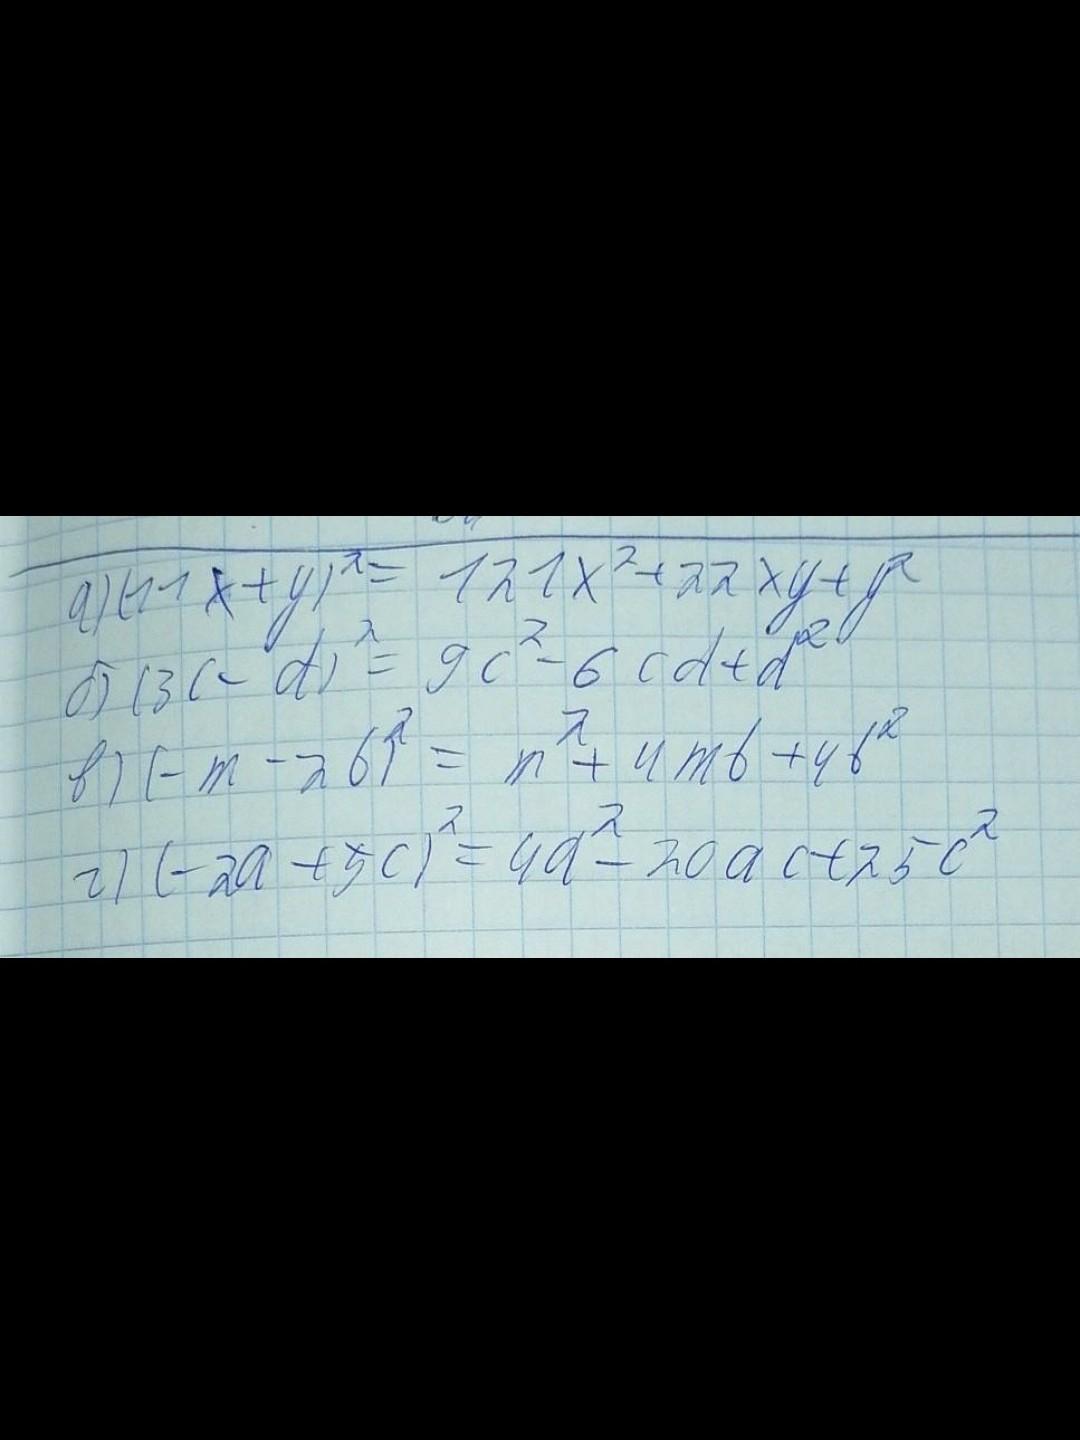 а) (11x+y)²= 121x²+22xy+y²
б) (3c-d)²= 9c²-6cd+d²
в) (-m-2b)² = m²+4mb+4b²
г) (-2a+5c)²=4a²-20ac+25c²